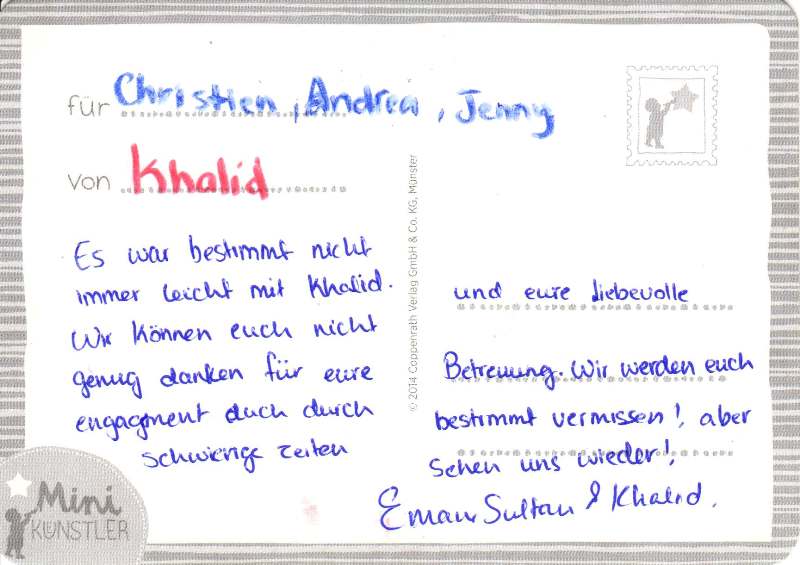 für Christien, Andrea, Jenny
von Khalid
Es war bestimmt nicht
immer leicht mit Khalid.
Wir können euch nicht
genug danken für eure
engagment auch durch
schwierige zeiten
und eure liebevolle
Betreuung. Wir werden euch
bestimmt vermissen!, aber
sehen uns wieder!,
Eman Sultan & Khalid.
© 2014 Coppenrath Verlag GmbH & Co. KG, Münster
Mini
KÜNSTLER